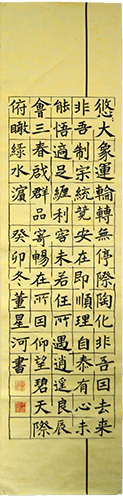 悠〻大象運輪轉無停際陶化非吾因去来
非吾制宗統竟安在即順理自泰有心未
能悟適足纏利害未若任所遇逍遥良辰
會三春啟群品寄暢在所因仰望碧天際
俯瞰綠水濱 癸卯冬董星河書